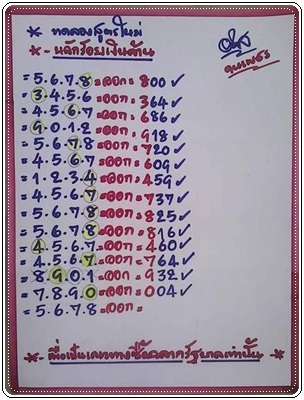 * ทดลองสูตรใหม่
* - หลักร้อยเงินล้าน
= 5.6.7.8 =ออก= 800 ✓
= 3.4.5.6 =ออก= 364 ✓
= 4.5.6.7 =ออก= 686 ✓
= 9.0.1.2 =ออก= 918 ✓
= 5.6.7.8 =ออก= 720 ✓
= 4.5.6.7 =ออก= 609 ✓
= 1.2.3.4 =ออก= 459 ✓
= 4.5.6.7 =ออก= 737 ✓
= 5.6.7.8 =ออก= 825 ✓
= 5.6.7.8 =ออก= 816 ✓
= 4.5.6.7 =ออก= 460 ✓
= 4.5.6.7 =ออก= 764 ✓
= 8.9.0.1 =ออก= 932 ✓
= 7.8.9.0 =ออก= 004 ✓
= 5.6.7.8 =ออก=
*- เพื่อเป็นแนวทางซื้อสลากรัฐบาลเท่านั้น -*